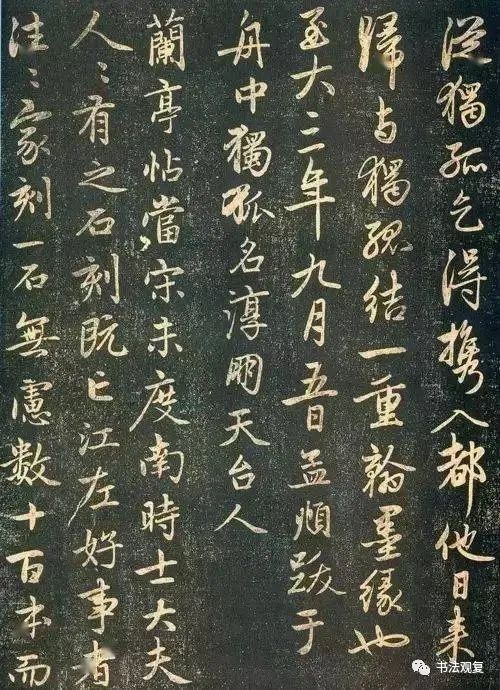 從獨孤乞得攜入都他日來
歸與獨孤結一重翰墨緣也
至大三年九月五日孟頫跋于
舟中獨孤名淳朋天台人
蘭亭帖當宋未度南時士大夫
人〻有之石刻既亡江左好事者
往〻家刻一石無慮數十百本而
书法观复